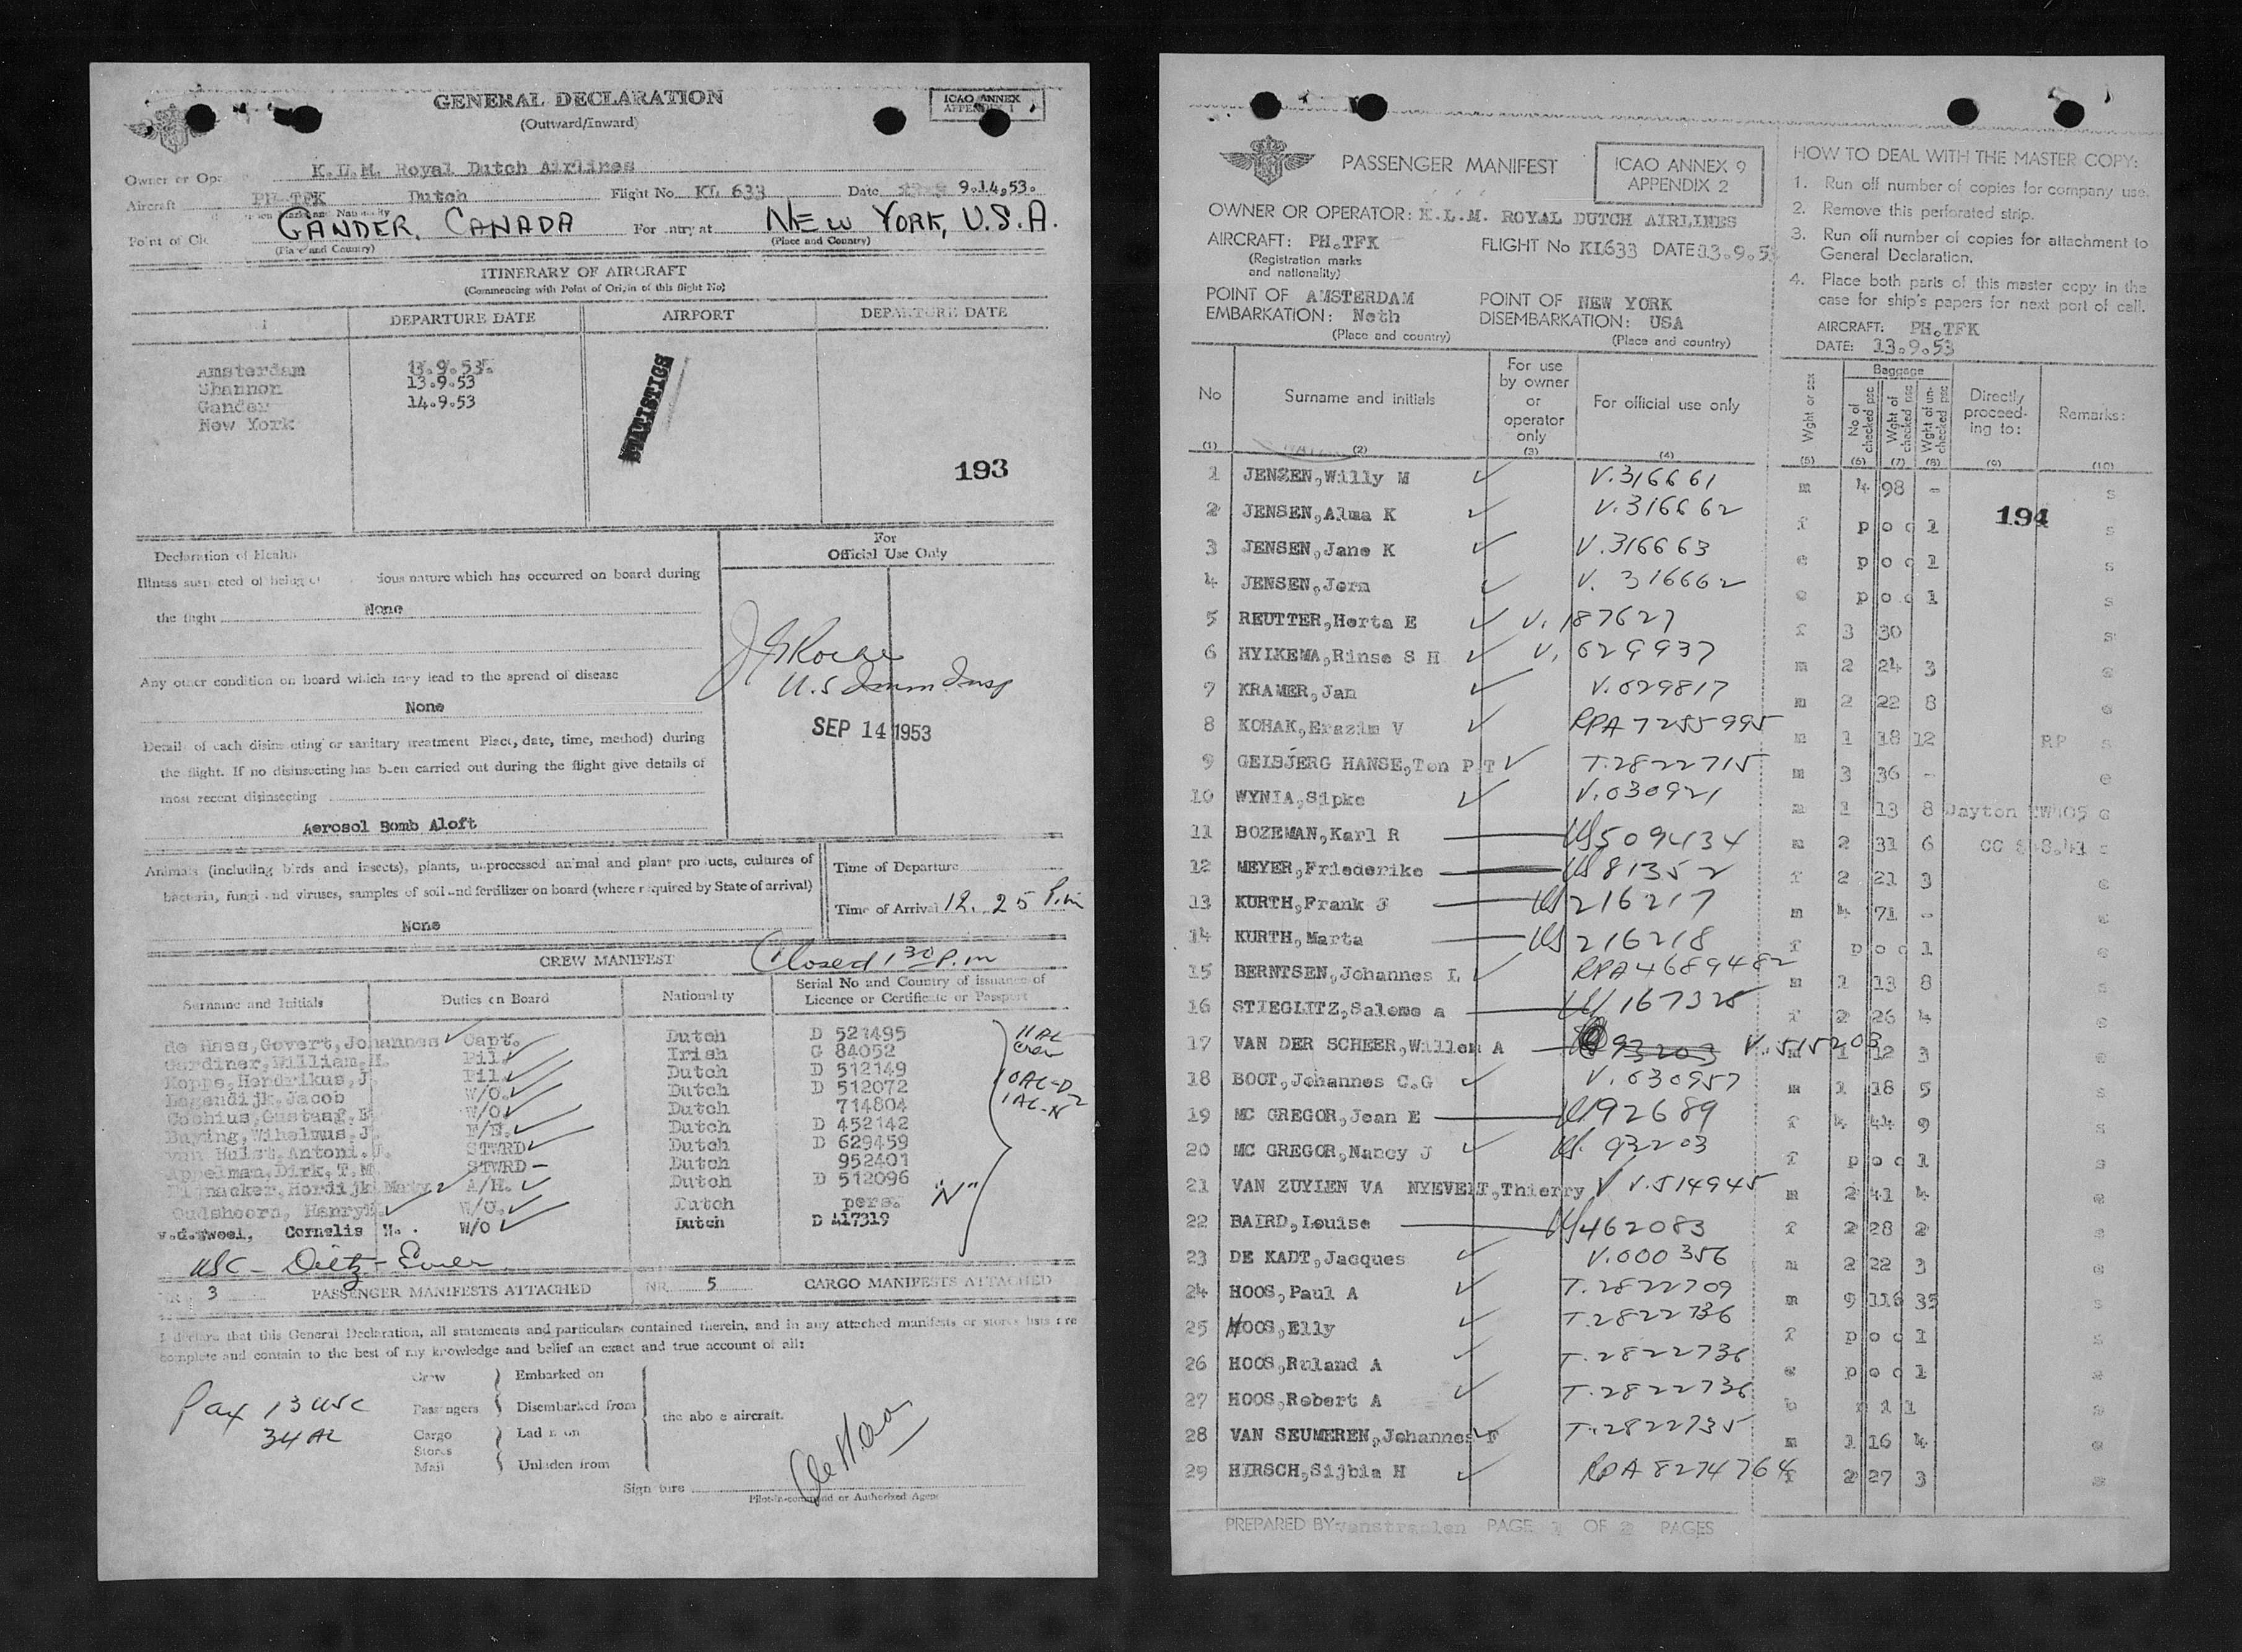 GENERAL DECLARATION
(Outward/Inward)
ICAO ANNEX
APPENDIX 1
Owner or Ope K.L.M. Royal Dutch Airlines
Aircraft PH-TFK Dutch Flight No KL 633 Date 9.14.53.
Point of Cl GANDER, CANADA For entry at NEW YORK, U.S.A.
(Place and Country) (Place and Country)
ITINERARY OF AIRCRAFT
(Commencing with Point of Origin of this flight No)
DEPARTURE DATE AIRPORT DEPARTURE DATE
Amsterdam 13.9.53.
Shannon 13.9.53
Gander 14.9.53
New York
STATISTICS
193
Declaration of Health
For
Official Use Only
Illness suspected of being of ious nature which has occurred on board during
the flight None
Any other condition on board which may lead to the spread of disease
None
U.S. Immn. Insp
SEP 14 1953
Details of each disinsecting or sanitary treatment Place, date, time, method) during
the flight. If no disinsecting has been carried out during the flight give details of
most recent disinsecting
Aerosol Bomb Aloft
Animals (including birds and insects), plants, unprocessed animal and plant products, cultures of
bacteria, fungi and viruses, samples of soil and fertilizer on board (where required by State of arrival)
None
Time of Departure
Time of Arrival 12.25 P.m
CREW MANIFEST Closed 1 30 P.m
Surname and Initials Duties on Board Nationality Serial No and Country of issuance of
Licence or Certificate or Passport
de Haas, Govert, Johannes Capt. Dutch D 521495
Gardiner, William, H. Pil. Irish G 84052
Hoppe, Hendrikus, J. Pil. Dutch D 512149
Lagendijk, Jacob W/O. Dutch D 512072
Cobhius, Gustaaf, E W/O. Dutch 714804
Buying, Wihelmus, J. F/E. Dutch D 452142
van Hulst, Antoni. J. STWRD Dutch D 629459
Appelman, Dirk, T.M. STWRD - Dutch 952401
Hordijk Mary A/H. Dutch D 512096
Oudshoorn, Henry W/O. Dutch pers. "N"
v.d. Cornelis H. W/O Dutch D 417319
11 AL
Crew
10 AL-D-2
1 AL-N
USC - Dietz -
NR 3 PASSENGER MANIFESTS ATTACHED NR 5 CARGO MANIFESTS ATTACHED
I declare that this General Declaration, all statements and particulars contained therein, and in any attached manifests or stores lists are
complete and contain to the best of my knowledge and belief an exact and true account of all:
Pax 13 USC
34 AL
Crew Embarked on
Passengers Disembarked from
Cargo Laden on the above aircraft.
Stores
Mail Unladen from
Signature de Haas
Pilot-in-command or Authorized Agent
PASSENGER MANIFEST
ICAO ANNEX 9
APPENDIX 2
OWNER OR OPERATOR: K.L.M. ROYAL DUTCH AIRLINES
AIRCRAFT: PH.TFK FLIGHT No KL633 DATE 13.9.53
(Registration marks
and nationality)
POINT OF AMSTERDAM POINT OF NEW YORK
EMBARKATION: Neth DISEMBARKATION: USA
(Place and country) (Place and country)
HOW TO DEAL WITH THE MASTER COPY:
1. Run off number of copies for company use.
2. Remove this perforated strip.
3. Run off number of copies for attachment to
General Declaration.
4. Place both parts of this master copy in the
case for ship's papers for next port of call.
AIRCRAFT: PH.TFK
DATE: 13.9.53
No Surname and initials For use by owner or operator only For official use only Wght or sex Baggage No of checked pcs Wght of checked pcs Wght of un-checked pcs Directly proceeding to: Remarks:
(1) (2) (3) (4) (5) (6) (7) (8) (9) (10)
194
1 JENZEN, Willy M V.316661 m 4 98 - s
2 JENSEN, Alma K V.316662 f p o o 1 s
3 JENSEN, Jane K V.316663 c p o o 1 s
4 JENSEN, Jern V. 316662 c p o o 1 s
5 REUTTER, Herta E V. 187627 f 3 30 s
6 HYLKEMA, Rinse S H V. 629937 m 2 24 3
7 KRAMER, Jan V.029817 m 2 22 8
8 KOHAK, Erazim V RPA 7255995 m 1 18 12 RP s
9 GELBJERG HANSE, Ton P.T T.2822715 m 3 36 -
10 WYNIA, Sipke V.030921 m 1 13 8 Dayton
11 BOZEMAN, Karl R US 509434 m 2 31 6
12 MEYER, Friederike US 81352 f 2 21 3
13 KURTH, Frank J US 216217 m 4 71 -
14 KURTH, Marta US 216218 f p o o 1
15 BERNTSEN, Johannes L RPA 4689482 m 1 13 8 s
16 STIEGLITZ, Salome a US 167325 f 2 26 4
17 VAN DER SCHEER, Willem A 93203 V.515203 m 1 12 3
18 BOOT, Johannes C.G V.030957 m 1 18 5 s
19 MC GREGOR, Jean E US 92689 f 4 44 9 s
20 MC GREGOR, Nancy J US. 93203 f p o o 1 s
21 VAN ZUYLEN VA NYEVELT, Thierry V.514945 m 2 41 4
22 BAIRD, Louise US 462083 f 2 28 2
23 DE KADT, Jacques V.000356 m 2 22 3
24 HOOS, Paul A T.2822709 m 9 116 35 s
25 HOOS, Elly T.2822736 f p o o 1 s
26 HOOS, Ruland A T.2822736 c p o o 1
27 HOOS, Robert A T.2822736 b 1 1
28 VAN SEUMEREN, Johannes F T.2822735 m 1 16 4
29 HIRSCH, Sijbia H RPA 8274764 f 2 27 3
PREPARED BY: vanstraalen PAGE 1 OF 2 PAGES